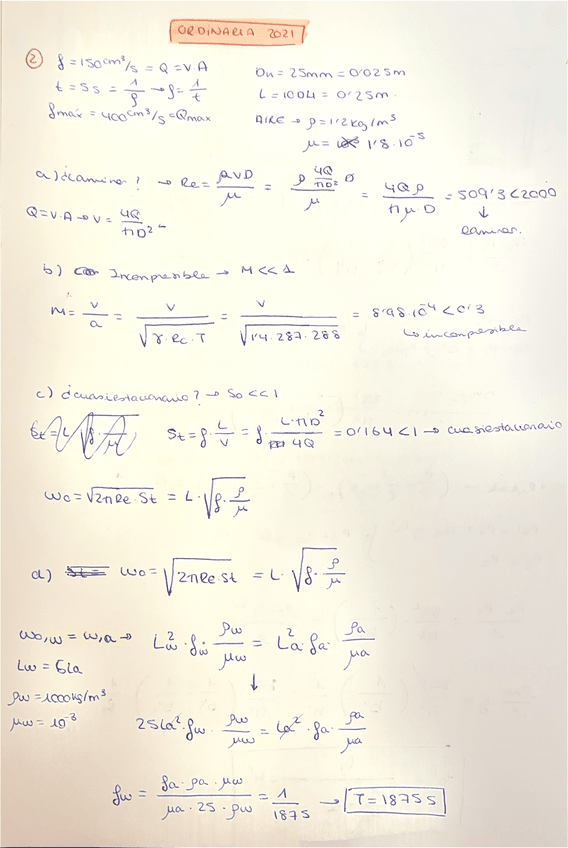 ORDINARIA 2021
② f = 150 cm³/s = Q = V·A
t = 5s = 1/f → f = 1/t
fmáx = 400 cm³/s = Qmax
DH = 25mm = 0'025m
L = 10DH = 0'25m.
AIRE → ρ = 1'2 kg/m³
μ = 1'8·10⁻⁵
a) ¿laminar? → Re = ρVD/μ = ρ (4Q/πD²) D/μ = 4Qρ/πμD = 509'3 < 2000
↓
laminar.
Q = V·A → V = 4Q/πD²
b) Incompresible → M << 1
M = V/a = V/√(γ·Rc·T) = V/√(1'4·287·288) = 8'98·10⁻⁴ < 0'3
↳ incompresible
c) ¿cuasiestacionario? → So << 1
St = f·L/V = f·L·πD²/4Q = 0'164 < 1 → cuasiestacionario
Wo = √(2πRe·St) = L·√(f·ρ/μ)
d) Wo = √(2πRe·St) = L·√(f·ρ/μ)
Wo,w = W,a → Lw²·fw·ρw/μw = La²·fa·ρa/μa
Lw = 5La
↓
ρw = 1000kg/m³
μw = 10⁻³
25La²·fw·ρw/μw = La²·fa·ρa/μa
fw = fa·ρa·μw/μa·25·ρw = 1/1875 → T = 1875 s